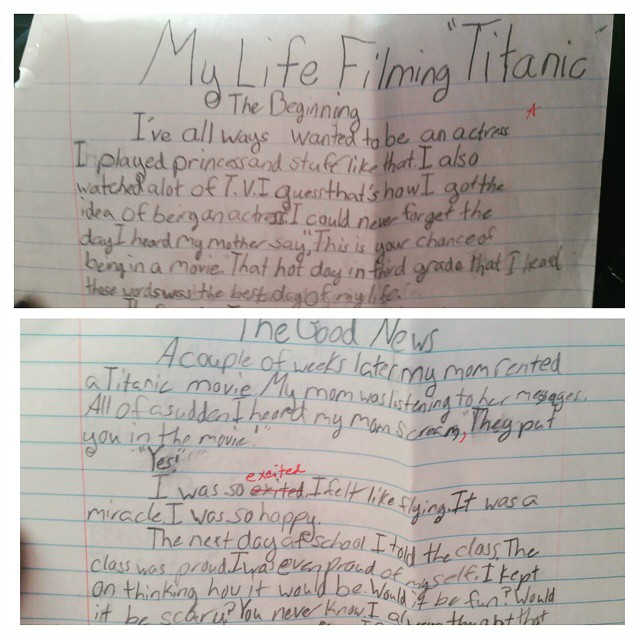 My Life Filming "Titanic"
The Beginning
A
I've all ways wanted to be an actress
I played princess and stuff like that. I also
watched alot of T.V. I guess that's how I got the
idea of being an actress. I could never forget the
day I heard my mother say, "This is your chance of
being in a movie." That hot day in third grade that I heard
these words was the best day of my life.
The Good News
A couple of weeks later my mom rented
a Titanic movie. My mom was listening to her messages.
All of a sudden I heard my mom scream, "They put
you in the movie!"
"Yes!"
excited
I was so exited. I felt like flying. It was a
miracle. I was so happy.
The next day at school I told the class. The
class was proud. I was even proud of myself. I kept
on thinking how it would be. Would it be fun? Would
it be scary? You never know. I thought that